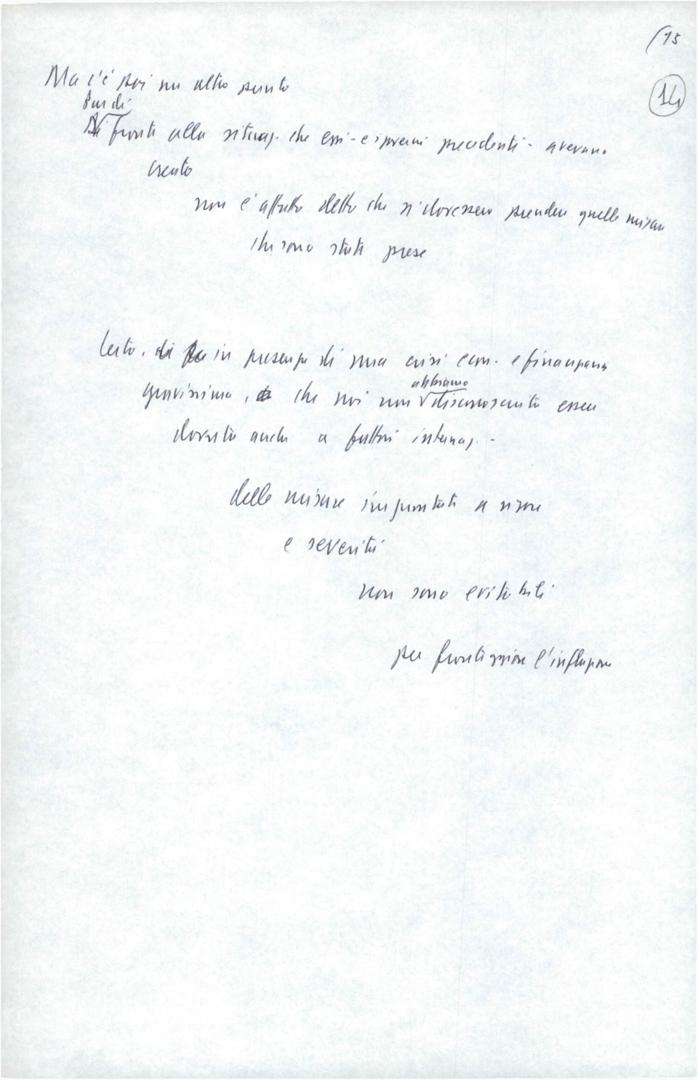 (15
14
Ma c'è poi un altro punto
Pur di
fronte alla situaz. che essi - e i governi precedenti - avevano
creato
non è affatto detto che si dovessero prendere quelle misure
che sono state prese
Certo, in presenza di una crisi econ. e finanziaria
gravissima, che noi non abbiamo disconosciuto essere
dovuta anche a fattori internaz. -
delle misure improntate a rigore
e severità
non sono evitabili
per fronteggiare l'inflazione